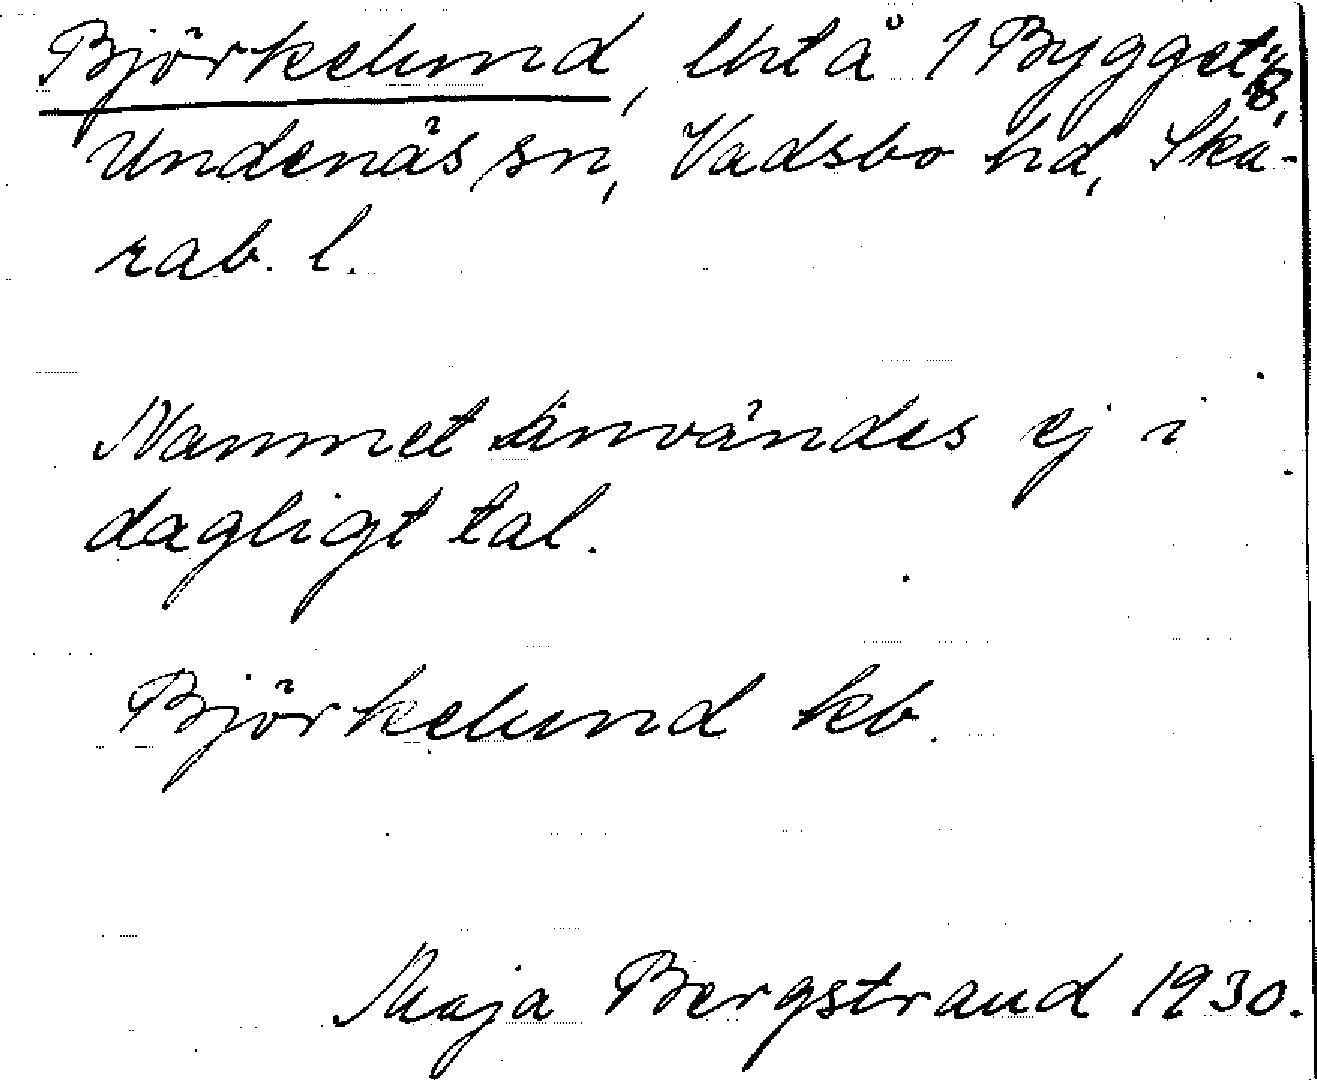 Björkelund, lht å 1 Bygget 8,
Undenäs sn, Vadsbo hd, Ska-
rab. l.
Namnet användes ej i
dagligt tal.
Björkelund kb.
Maja Bergstrand 1930.